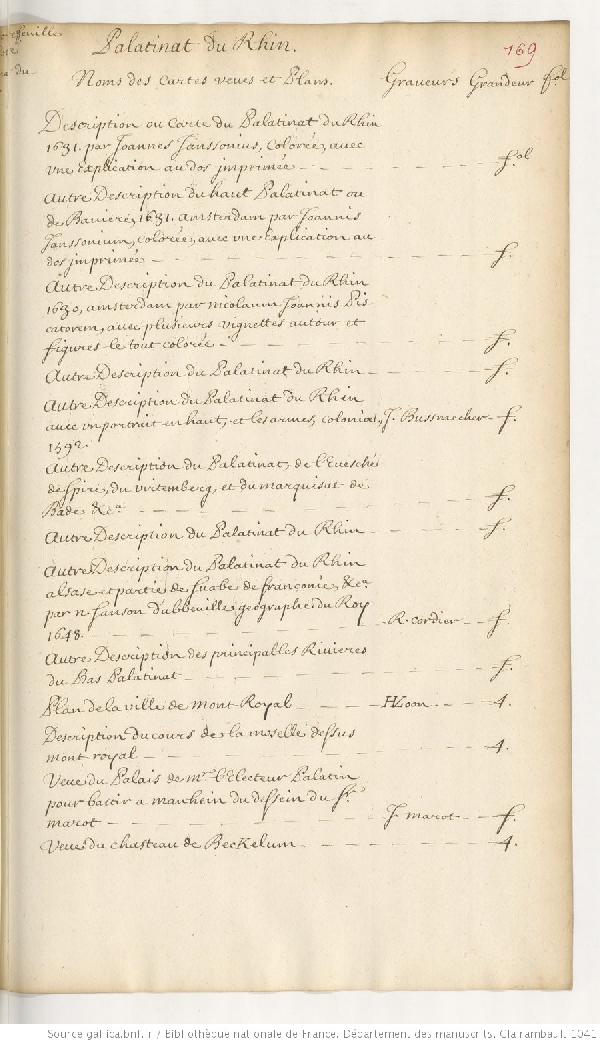 Palatinat du Rhin.
169
Noms des Cartes veues et Plans. Graveurs Grandeur fol
Description ou Carte du Palatinat du Rhin
1631. par Joannes Janssonius, Colorée, avec
vne explication au dos jmprimée - - - fol
Autre Description du haut Palatinat ou
de Baviere, 1631. amsterdam par Joannis
Janssonium, colorée, avec vne explication au
dos jmprimée - - - f.
Autre Description du Palatinat du Rhin
1630, amsterdam par nicolaum Joannis Pis
catorem, avec plusieurs vignettes autour et
figures le tout colorée - - - f.
Autre Description du Palatinat du Rhin - - - f.
Autre Description du Palatinat du Rhin
avec vn portrait en haut, et les armes, coloniæ, J. Bussmecher - f.
1592.
Autre Description du Palatinat, de l'Euesché
de spire, du virtemberg, et du marquisat de
Bade &ca - - - f.
Autre Description du Palatinat du Rhin - - - f.
Autre Description du Palatinat du Rhin
alsase et partie de suabe de françonie, &ca
par n. sanson d'abbeuille geographe du Roy
1648 - - - R. cordier - f.
Autre Description des principalles Riuieres
du Bas Palatinat - - - f.
Plan de la ville de mont Royal - - - HLoon - - 4.
Description du cours de la moselle dessus
mont royal - - - 4.
Veue du Palais de mr. l'Electeur Palatin
pour bastir a manhein du dessein du sr.
marot - - - J. marot - - f.
Veue du chasteau de Beckelum - - - 4.
Source gallica.bnf.fr / Bibliothèque nationale de France. Département des manuscrits. Clairambault 1041